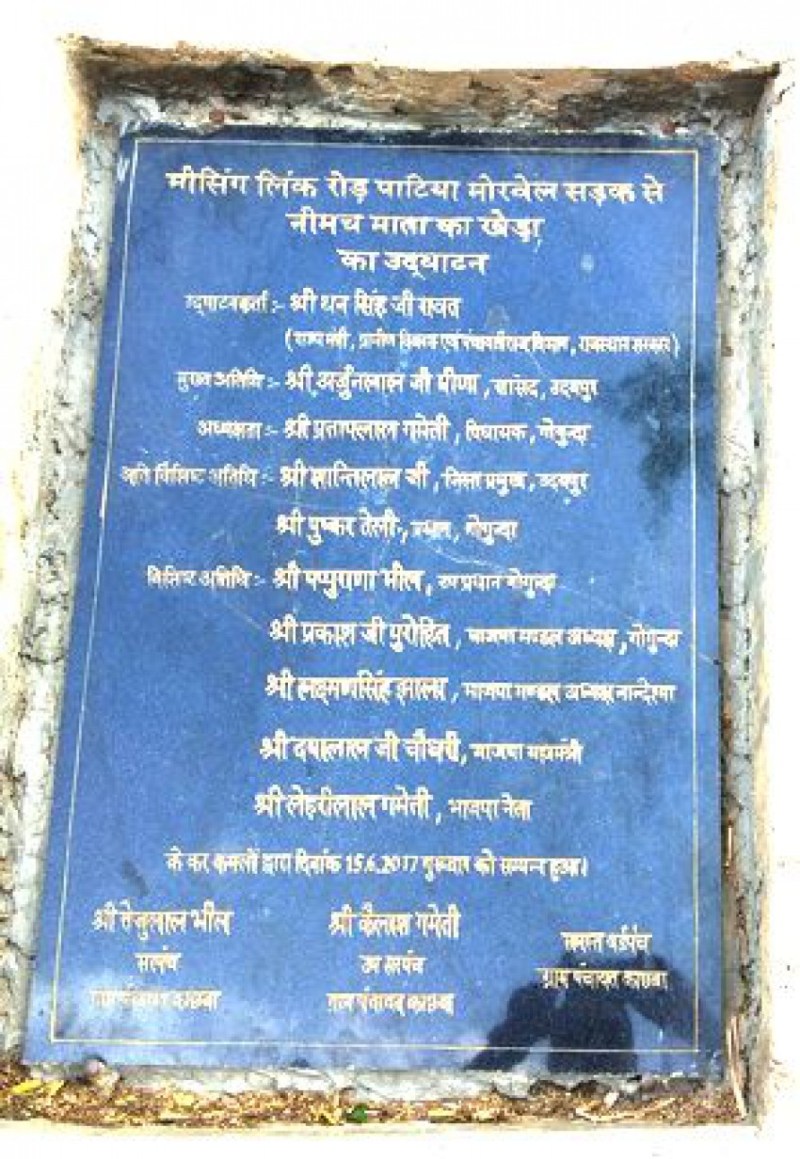 मीसिंग लिंक रोड़ पाटिया मोरवेल सड़क से
नीमच माता का खेड़ा
का उद्घाटन
उद्घाटनकर्ता :- श्री धन सिंह जी रावत
(राज्य मंत्री, ग्रामीण विकास एवं पंचायतीराज विभाग, राजस्थान सरकार)
मुख्य अतिथि :- श्री अर्जुनलाल जी मीणा, सांसद, उदयपुर
अध्यक्षता :- श्री प्रतापलाल गमेती, विधायक, गोगुन्दा
अति विशिष्ट अतिथि :- श्री शान्तिलाल जी, जिला प्रमुख, उदयपुर
श्री पुष्कर तेली, प्रधान, गोगुन्दा
विशिष्ट अतिथि :- श्री पप्पुराणा भील, उप प्रधान गोगुन्दा
श्री प्रकाश जी पुरोहित, भाजपा मण्डल अध्यक्ष, गोगुन्दा
श्री लक्ष्मणसिंह झाला, भाजपा मण्डल अध्यक्ष नान्देश्मा
श्री दयालाल जी चौधरी, भाजपा महामंत्री
श्री लेहरीलाल गमेती, भाजपा नेता
के कर कमलों द्वारा दिनांक 15.6.2017 गुरूवार को सम्पन्न हुआ।
श्री तेजुलाल भील
सरपंच
ग्राम पंचायत
श्री कैलाश गमेती
उप सरपंच
ग्राम पंचायत
समस्त वार्डपंच
ग्राम पंचायत